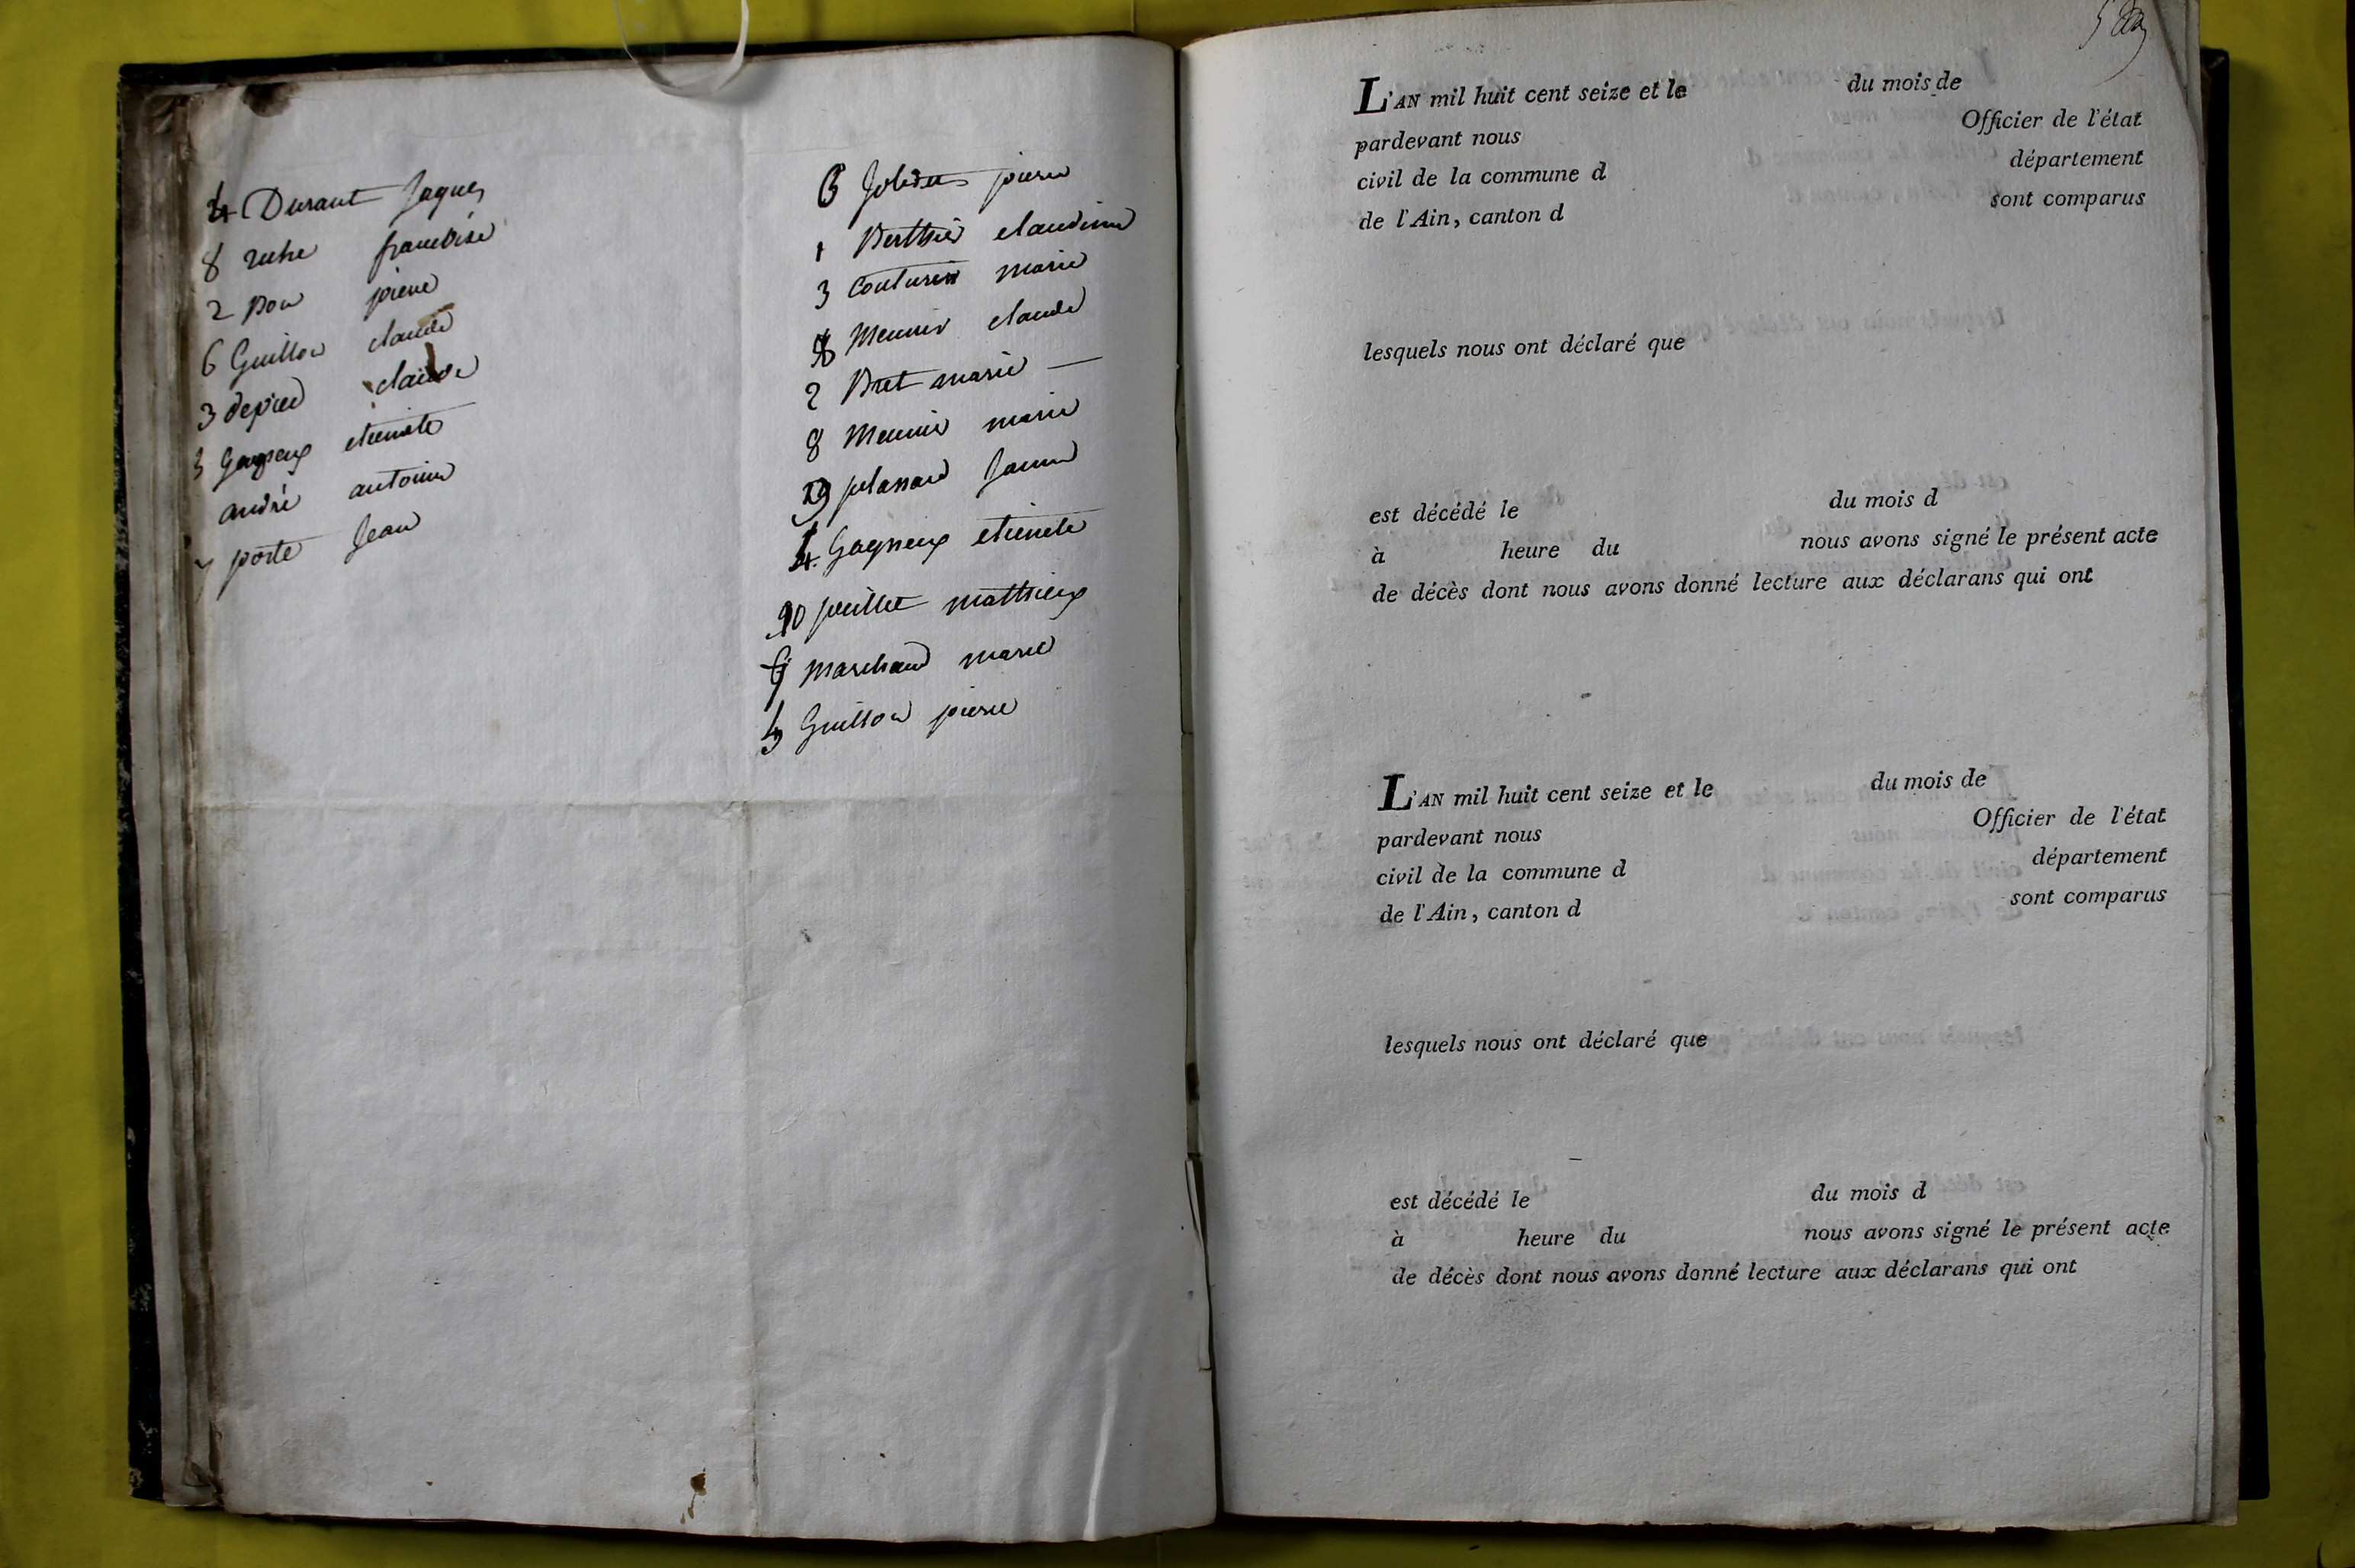 4 Durant Jaques
8 ruhe francoise
2 Bon pierre
6 Guillon claude
3 depied claude
5 Gagneux etienete
andré antoine
7 porte Jean
6 pierre
1 Berthier claudine
3 Couturier marie
8 Meunier claude
2 Bret marie —
8 Meunier marie
planard Janne
4 Gagneux etienete
10 juillet mathieux
marchand marie
5 Guillon pierre
L'AN mil huit cent seize et le du mois de
pardevant nous Officier de l'état
civil de la commune d département
de l'Ain, canton d sont comparus
lesquels nous ont déclaré que
est décédé le du mois d
à heure du nous avons signé le présent acte
de décès dont nous avons donné lecture aux déclarans qui ont
L'AN mil huit cent seize et le du mois de
pardevant nous Officier de l'état
civil de la commune d département
de l'Ain, canton d sont comparus
lesquels nous ont déclaré que
est décédé le du mois d
à heure du nous avons signé le présent acte
de décès dont nous avons donné lecture aux déclarans qui ont